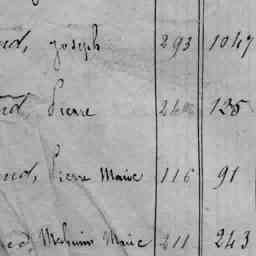 Joseph 293 1047
Pierre 125
Pierre Marie 116 91
Mathurin Marie 211 243